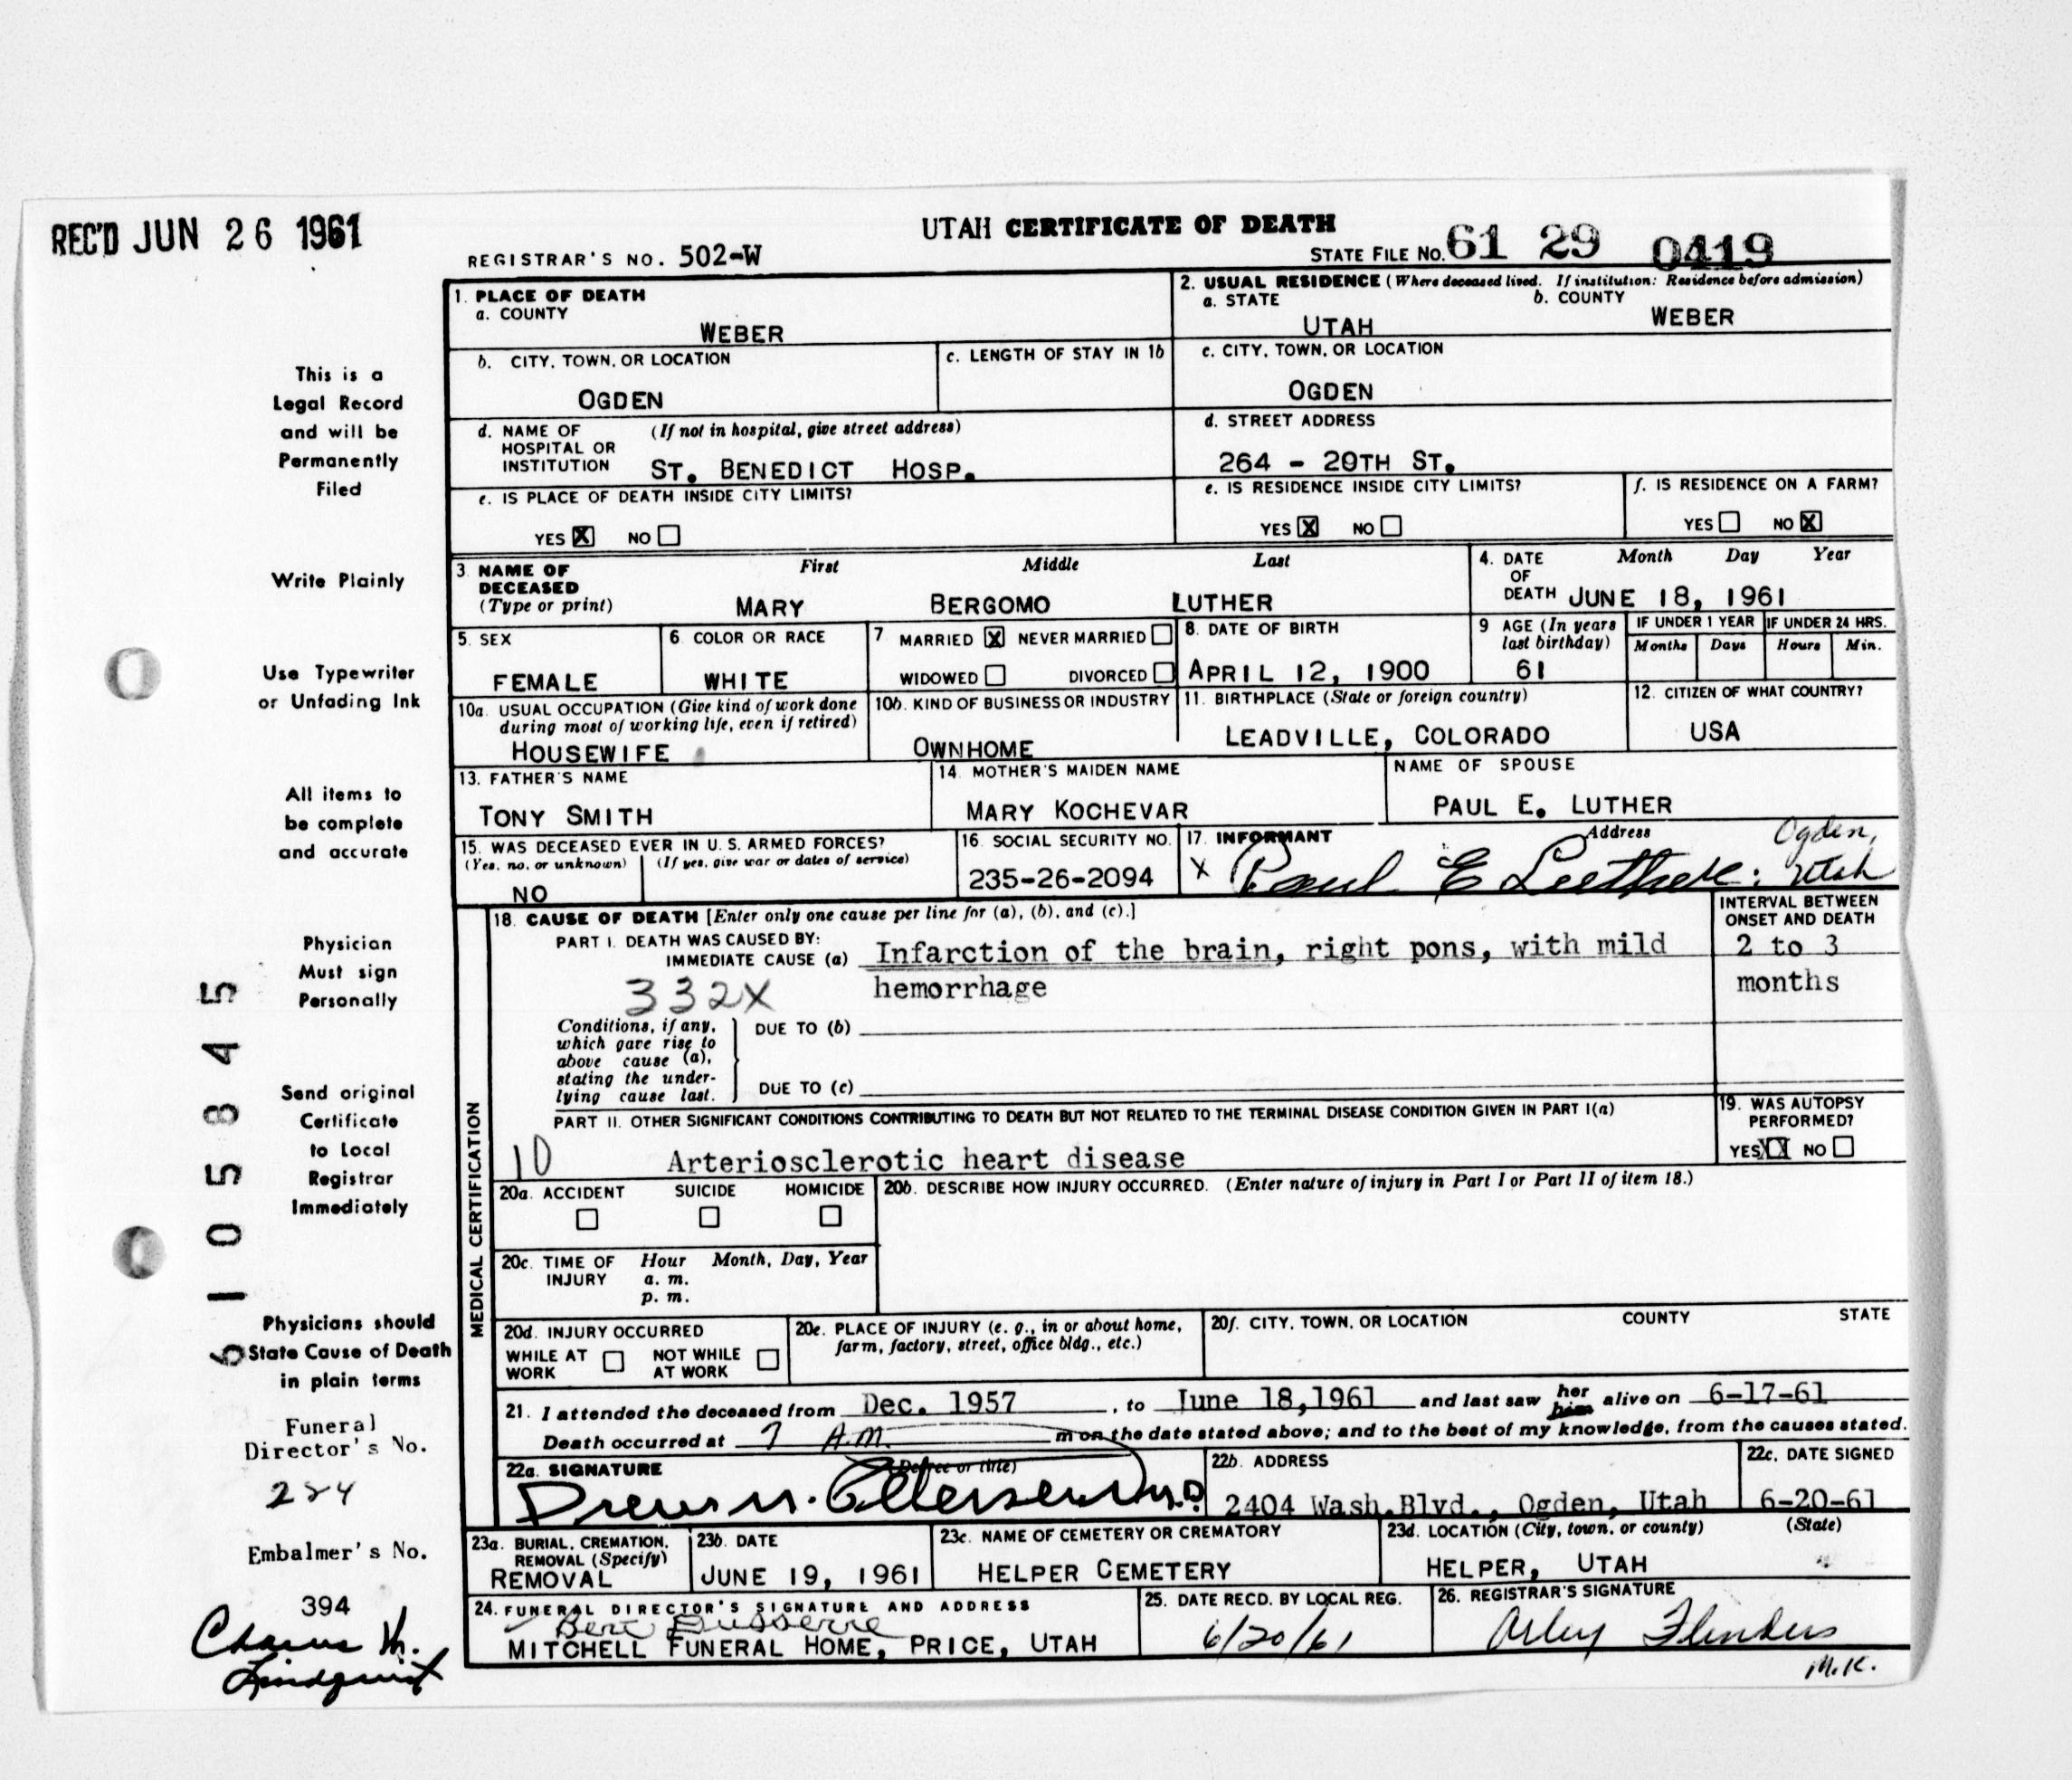 REC'D JUN 26 1961
UTAH CERTIFICATE OF DEATH
REGISTRAR'S NO. 502-W
STATE FILE NO. 61 29 0419
1. PLACE OF DEATH
a. COUNTY
WEBER
2. USUAL RESIDENCE (Where deceased lived. If institution: Residence before admission)
a. STATE b. COUNTY
UTAH WEBER
b. CITY, TOWN, OR LOCATION
OGDEN
c. LENGTH OF STAY IN 1b
c. CITY, TOWN, OR LOCATION
OGDEN
d. NAME OF (If not in hospital, give street address)
HOSPITAL OR
INSTITUTION ST. BENEDICT HOSP.
d. STREET ADDRESS
264 - 20TH ST.
e. IS PLACE OF DEATH INSIDE CITY LIMITS?
YES X NO
e. IS RESIDENCE INSIDE CITY LIMITS?
YES X NO
f. IS RESIDENCE ON A FARM?
YES NO X
3. NAME OF First Middle Last
DECEASED
(Type or print) MARY BERGOMO LUTHER
4. DATE Month Day Year
OF
DEATH JUNE 18, 1961
5. SEX
FEMALE
6. COLOR OR RACE
WHITE
7. MARRIED X NEVER MARRIED
WIDOWED DIVORCED
8. DATE OF BIRTH
APRIL 12, 1900
9 AGE (In years
last birthday)
61
IF UNDER 1 YEAR IF UNDER 24 HRS.
Months Days Hours Min.
10a. USUAL OCCUPATION (Give kind of work done
during most of working life, even if retired)
HOUSEWIFE
10b. KIND OF BUSINESS OR INDUSTRY
OWNHOME
11. BIRTHPLACE (State or foreign country)
LEADVILLE, COLORADO
12. CITIZEN OF WHAT COUNTRY?
USA
13. FATHER'S NAME
TONY SMITH
14. MOTHER'S MAIDEN NAME
MARY KOCHEVAR
NAME OF SPOUSE
PAUL E. LUTHER
15. WAS DECEASED EVER IN U. S. ARMED FORCES?
(Yes, no, or unknown) (If yes, give war or dates of service)
NO
16. SOCIAL SECURITY NO.
235-26-2094
17. INFORMANT Address
X Paul E Luther. Ogden, Utah
MEDICAL CERTIFICATION
18. CAUSE OF DEATH [Enter only one cause per line for (a), (b), and (c).]
PART I. DEATH WAS CAUSED BY:
IMMEDIATE CAUSE (a) Infarction of the brain, right pons, with mild
332X hemorrhage
INTERVAL BETWEEN
ONSET AND DEATH
2 to 3
months
Conditions, if any,
which gave rise to
above cause (a),
stating the under-
lying cause last.
DUE TO (b)
DUE TO (c)
PART II. OTHER SIGNIFICANT CONDITIONS CONTRIBUTING TO DEATH BUT NOT RELATED TO THE TERMINAL DISEASE CONDITION GIVEN IN PART I(a)
10 Arteriosclerotic heart disease
19. WAS AUTOPSY
PERFORMED?
YES XX NO
20a. ACCIDENT SUICIDE HOMICIDE
20b. DESCRIBE HOW INJURY OCCURRED. (Enter nature of injury in Part I or Part II of item 18.)
20c. TIME OF Hour Month, Day, Year
INJURY a. m.
p. m.
20d. INJURY OCCURRED
WHILE AT NOT WHILE
WORK AT WORK
20e. PLACE OF INJURY (e. g., in or about home,
farm, factory, street, office bldg., etc.)
20f. CITY, TOWN, OR LOCATION COUNTY STATE
21. I attended the deceased from Dec. 1957, to June 18,1961 and last saw her him alive on 6-17-61
Death occurred at 7 A.M. m on the date stated above; and to the best of my knowledge, from the causes stated.
22a. SIGNATURE (Degree or title)
Drew M. M.D.
22b. ADDRESS
2404 Wash.Blvd., Ogden, Utah
22c. DATE SIGNED
6-20-61
23a. BURIAL, CREMATION,
REMOVAL (Specify)
REMOVAL
23b. DATE
JUNE 19, 1961
23c. NAME OF CEMETERY OR CREMATORY
HELPER CEMETERY
23d. LOCATION (City, town, or county) (State)
HELPER, UTAH
24. FUNERAL DIRECTOR'S SIGNATURE AND ADDRESS
Bert Dusserre
MITCHELL FUNERAL HOME, PRICE, UTAH
25. DATE RECD. BY LOCAL REG.
6/20/61
26. REGISTRAR'S SIGNATURE
Arley Flinders
M.K.
This is a
Legal Record
and will be
Permanently
Filed
Write Plainly
Use Typewriter
or Unfading Ink
All items to
be complete
and accurate
Physician
Must sign
Personally
Send original
Certificate
to Local
Registrar
Immediately
Physicians should
State Cause of Death
in plain terms
Funeral
Director's No.
284
Embalmer's No.
394
Lindquist
6105845